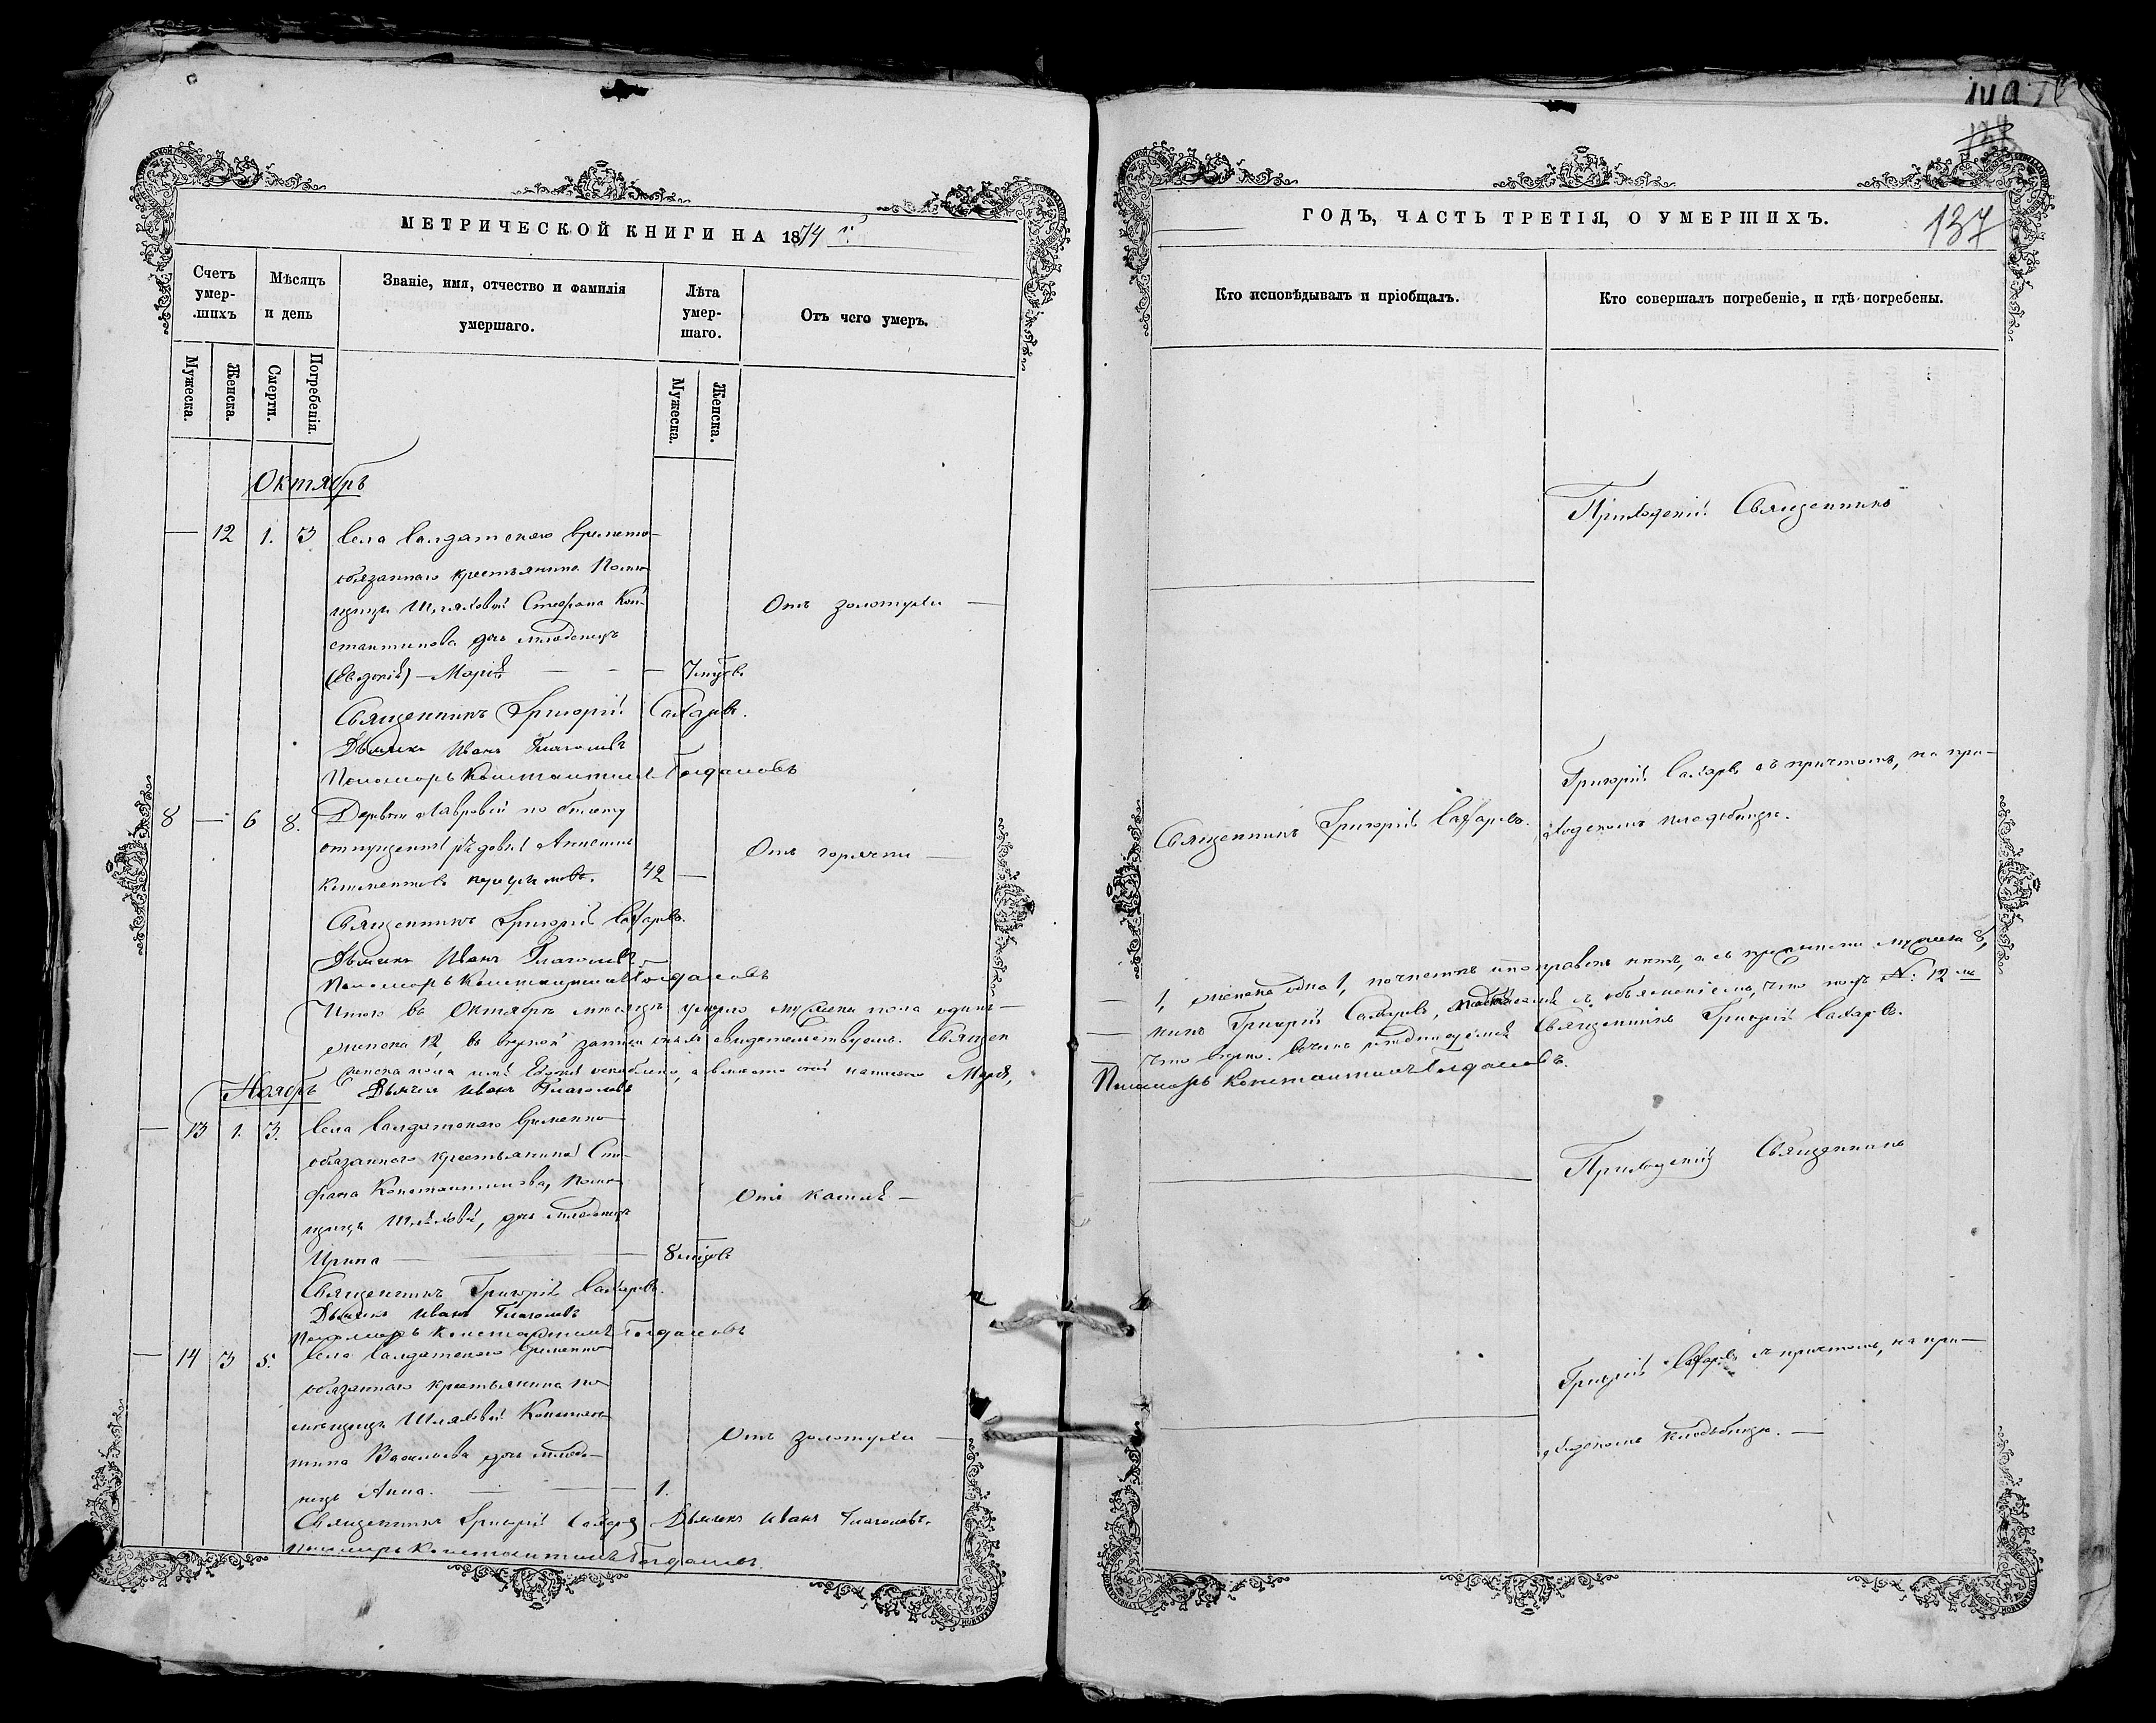 МЕТРИЧЕСКОЙ КНИГИ НА 1874 г.
Счетъ умер-шихъ
Мѣсяцъ и день
Званіе, имя, отчество и фамилія умершаго.
Лѣта умер-шаго.
Отъ чего умеръ.
Мужеска.
Женска.
Смерти.
Погребенія.
Мужеска.
Женска.
Октябрь
— 12 1. 3 Села Салдатскаго временно-
обязаннаго крестьянина Помѣ-
щицы Шляховой Стефана Кон-
стантинова дочь младенецъ
(Евдокія) — Марія — — — 7 мѣсяц.
Отъ золотухи —
Священникъ Григорій Сахаровъ.
Дьячекъ Иванъ Глаголевъ
Пономарь Константинъ Богдановъ
8 — 6 8. Деревни Лавровой по билету
отпущенный рядовой
42 —
Отъ горячки —
Священникъ Григорій Сахаровъ.
Дьячекъ Иванъ Глаголевъ
Пономарь Константинъ Богдановъ
Итого въ Октябрѣ мѣсяцѣ умерло мужеска пола одинъ —
женска 12, въ верной записи свидетельствуемъ. Священ
женска пола имя а вместо сей написано Марія,
Ноябрь
Дьячекъ Иванъ Глаголевъ
— 13 1. 3. Села Салдатскаго временно-
обязаннаго крестьянина Сте-
фана Константинова, Помѣ-
щицы Шляховой, дочь младенецъ
Ирина — — — 8 мѣсяц.
Отъ кашля —
Священникъ Григорій Сахаровъ.
Дьячекъ Иванъ Глаголевъ
Пономарь Константинъ Богдановъ
— 14 3 5. Села Салдатскаго временно
обязаннаго крестьянина по-
мѣщицы Шляховой Констан-
тина Васильева дочь младе-
нецъ Анна. — — 1.
Отъ золотухи —
Священникъ Григорій Сахаровъ Дьячекъ Иванъ Глаголевъ.
Пономарь Константинъ Богдановъ.
ГОДЪ, ЧАСТЬ ТРЕТІЯ, О УМЕРШИХЪ.
137
Кто исповѣдывалъ и пріобщалъ.
Кто совершалъ погребеніе, и гдѣ погребены.
Приходскій Священникъ
Григорій Сахаровъ съ причтомъ, на при-
ходскомъ кладбищѣ.
Священникъ Григорій Сахаровъ.
— 1, женска одна 1, почистокъ и поправокъ нѣтъ, а съ прежними мужеска 8,
— никъ Григорій Сахаровъ, съ объясненіемъ, что подъ №: 12 мъ
что верно. Священникъ Григорій Сахаровъ.
Пономарь Константинъ Богдановъ.
Приходскій Священникъ
Григорій Сахаровъ съ причтомъ, на при-
ходскомъ кладбищѣ. —